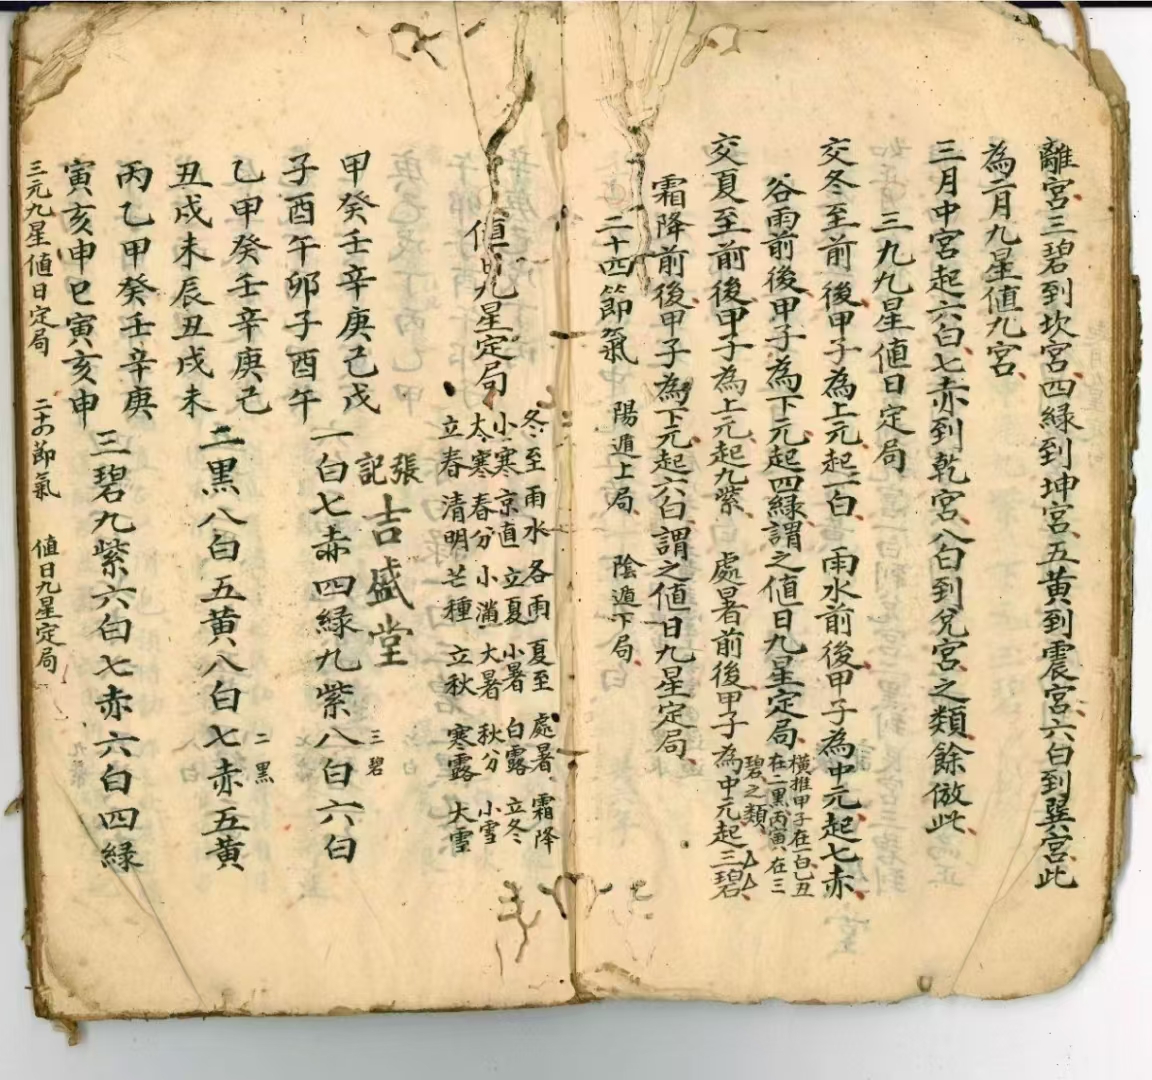 離宮三碧到坎宮四緑到坤宮五黄到震宮六白到巽宮此
為二月九星值九宮
三月中宮起六白七赤到乾宮八白到兌宮之類餘倣此
三九九星值日定局
交冬至前後甲子為上元起一白 雨水前後甲子為中元起七赤
谷雨前後甲子為下元起四緑謂之値日九星定局
橫推甲子在一白乙丑
在二黑丙寅在三
碧之類
交夏至前後甲子為上元起九紫 處暑前後甲子為中元起三碧
霜降前後甲子為下元起六白謂之値日九星定局
二十四節氣 陽遁上局 陰遁下局
值日九星定局
冬至 雨水 各雨 夏至 處暑 霜降
小寒 京直 立夏 小暑 白露 立冬
太寒 春分 小滿 大暑 秋分 小雪
立春 清明 芒種 立秋 寒露 大雪
張
記
吉盛堂
三碧
甲癸壬辛庚己戊
子酉午卯子酉午
一白七赤四緑九紫八白六白
二黑
乙甲癸壬辛庚己
丑戌未辰丑戌未
二黑八白五黄八白七赤五黄
丙乙甲癸壬辛庚
寅亥申巳寅亥申
三碧九紫六白七赤六白四緑
三元九星値日定局 二十四節氣 値日九星定局